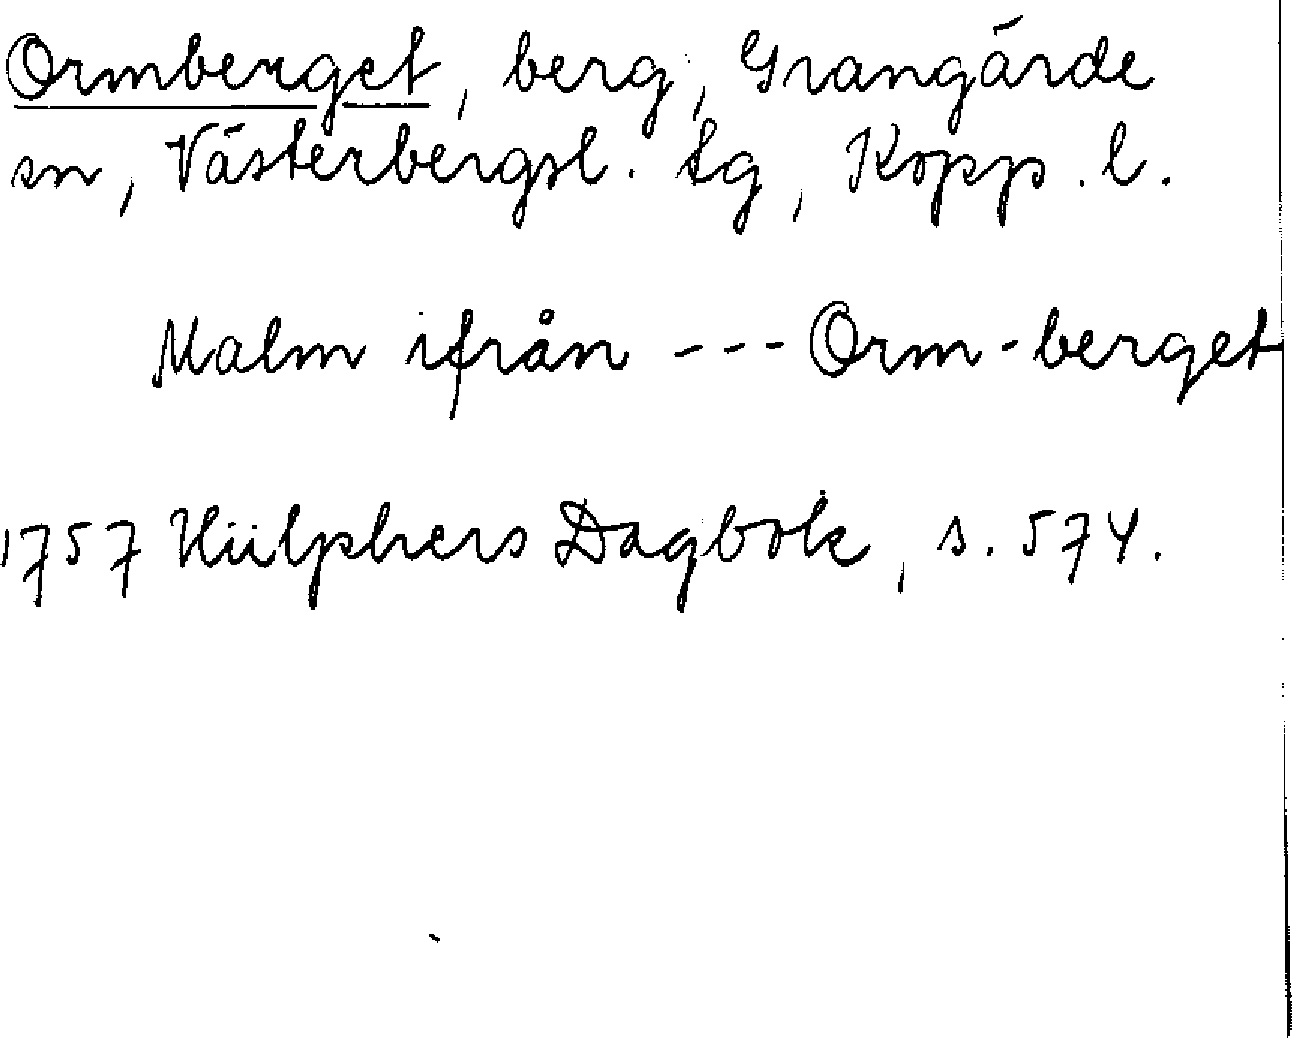 Ormberget, berg, Grangärde
sn, Västerbergsl. tg, Kopp. l.
Malm ifrån --- Orm-berget
1757 Hülphers Dagbok, s. 574.